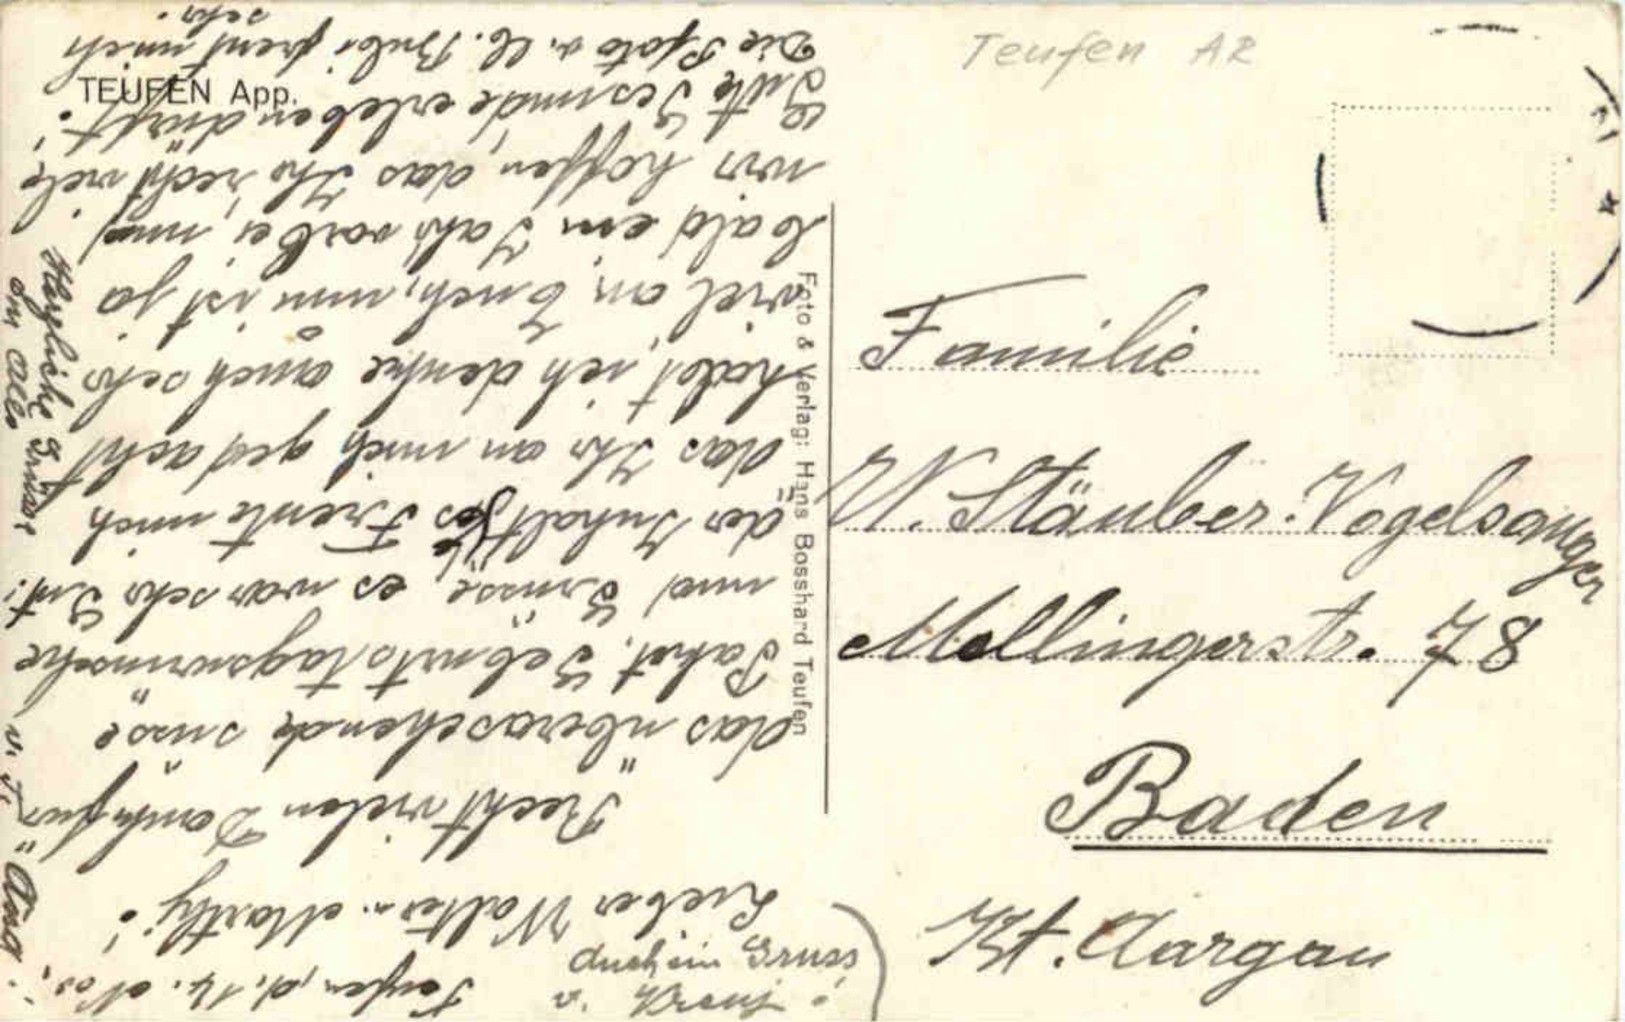 Teufen AR
TEUFEN App.
Foto & Verlag: Hans Bosshard Teufen
Familie
W. Stäuber-Vogelsanger
Mellingerstr. 78
Baden
Kt. Aargau
Teufen, d. 14. Nov.
Lieber Walter u. Marthy!
Recht vielen Dank für
das überraschende süsse
Paket, Geburtstagswünsche
und Grüsse, es war sehr Gut!
der Inhalt, Freute mich
das Ihr an mich gedacht
habt, ich denke auch sehr
viel an Euch, nun ist ja
bald ein Jahr vorbei, nun
wir hoffen, das Ihr recht viele
Gute Gesunde erleben dürft!
Die Photo v. lb. Bubi freut mich
sehr.
Herzliche Grüsse
an alle
ein Gruss